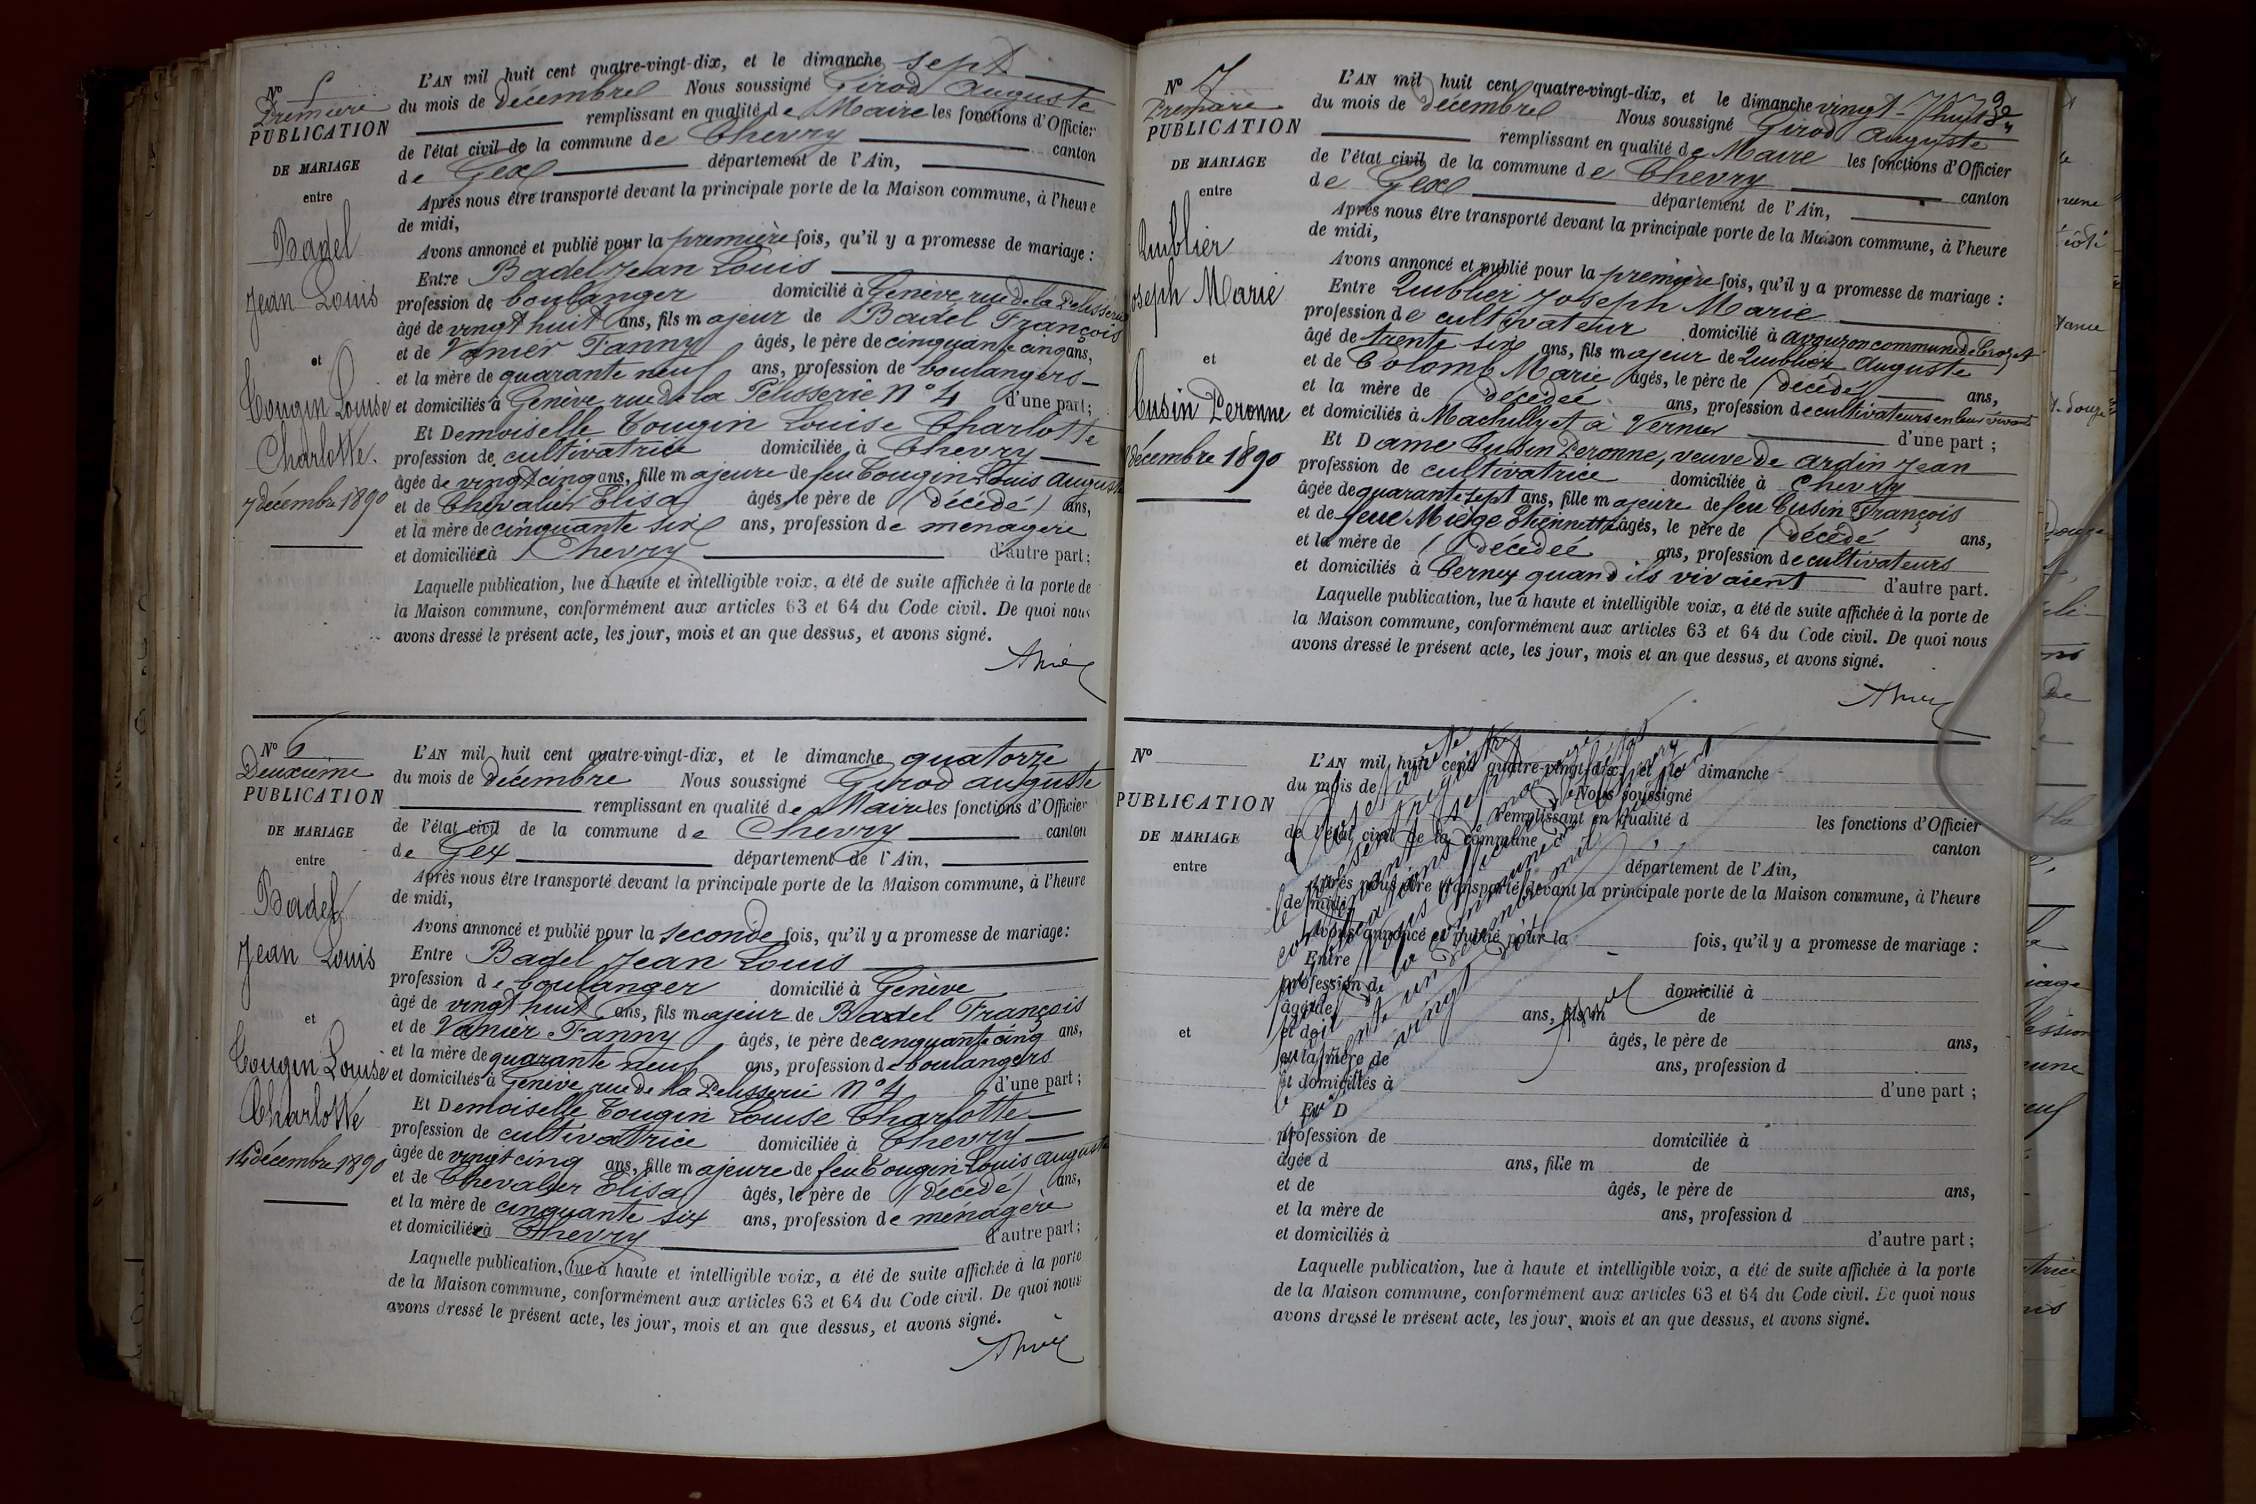 N° 5
Première
PUBLICATION
DE MARIAGE
entre
Badel
Jean Louis
et
Tougin Louise
Charlotte.
7 décembre 1890
L'AN mil huit cent quatre-vingt-dix, et le dimanche sept
du mois de Décembre Nous soussigné Girod Auguste
remplissant en qualité de Maire les fonctions d'Officier
de l'état civil de la commune de Chevry canton
de Gex département de l'Ain,
Après nous être transporté devant la principale porte de la Maison commune, à l'heure
de midi,
Avons annoncé et publié pour la première fois, qu'il y a promesse de mariage :
Entre Badel Jean Louis
profession de boulanger domicilié à Genève, rue de la Pelisserie
âgé de vingt huit ans, fils majeur de Badel François
et de Vanier Fanny âgés, le père de cinquante cinq ans,
et la mère de quarante neuf ans, profession de boulangers
et domiciliés à Genève, rue de la Pelisserie N° 4 d'une part ;
Et Demoiselle Tougin Louise Charlotte
profession de cultivatrice domiciliée à Chevry
âgée de vingt cinq ans, fille majeure de feu Tougin Louis Auguste
et de Chevalier Elisa âgés, le père de (décédé) ans,
et la mère de cinquante six ans, profession de menagère
et domiciliée à Chevry d'autre part ;
Laquelle publication, lue à haute et intelligible voix, a été de suite affichée à la porte de
la Maison commune, conformément aux articles 63 et 64 du Code civil. De quoi nous
avons dressé le présent acte, les jour, mois et an que dessus, et avons signé.
N° 6
Deuxième
PUBLICATION
DE MARIAGE
entre
Badel
Jean Louis
et
Tougin Louise
Charlotte
14 décembre 1890
L'AN mil huit cent quatre-vingt-dix, et le dimanche quatorze
du mois de Décembre Nous soussigné Girod auguste
remplissant en qualité de Maire les fonctions d'Officier
de l'état civil de la commune de Chevry canton
de Gex département de l'Ain,
Après nous être transporté devant la principale porte de la Maison commune, à l'heure
de midi,
Avons annoncé et publié pour la seconde fois, qu'il y a promesse de mariage :
Entre Badel Jean Louis
profession de boulanger domicilié à Genève
âgé de vingt huit ans, fils majeur de Badel François
et de Vanier Fanny âgés, le père de cinquante cinq ans,
et la mère de quarante neuf ans, profession de boulangers
et domiciliés à Genève, rue de la Pelisserie N° 4 d'une part ;
Et Demoiselle Tougin Louise Charlotte
profession de cultivatrice domiciliée à Chevry
âgée de vingt cinq ans, fille majeure de feu Tougin Louis Auguste
et de Chevalier Elisa âgés, le père de (décédé) ans,
et la mère de cinquante six ans, profession de menagère
et domiciliée à Chevry d'autre part ;
Laquelle publication, lue à haute et intelligible voix, a été de suite affichée à la porte
de la Maison commune, conformément aux articles 63 et 64 du Code civil. De quoi nous
avons dressé le présent acte, les jour, mois et an que dessus, et avons signé.
N° 7
Première
PUBLICATION
DE MARIAGE
entre
Qublier
Joseph Marie
et
Cusin Peronne
décembre 1890
L'AN mil huit cent quatre-vingt-dix, et le dimanche vingt-huit
du mois de décembre Nous soussigné Girod Auguste
remplissant en qualité de Maire les fonctions d'Officier
de l'état civil de la commune de Chevry canton
de Gex département de l'Ain,
Après nous être transporté devant la principale porte de la Maison commune, à l'heure
de midi,
Avons annoncé et publié pour la première fois, qu'il y a promesse de mariage :
Entre Qublier Joseph Marie
profession de cultivateur domicilié à avouzon commune de Crozet
âgé de trente six ans, fils majeur de Qublier Auguste
et de Colomb Marie âgés, le père de (décédé) ans,
et la mère de (décédée ans, profession de cultivateurs en leur vivant
et domiciliés à Machilly et à Vernier d'une part ;
Et Dame Cusin Peronne, veuve de Ardin Jean
profession de cultivatrice domiciliée à Chevry
âgée de quarante sept ans, fille majeure de feu Cusin François
et de feue Miège Etiennette âgés, le père de (décédé ans,
et la mère de (décédée ans, profession de cultivateurs
et domiciliés à Cernex quand ils vivaient d'autre part.
Laquelle publication, lue à haute et intelligible voix, a été de suite affichée à la porte de
la Maison commune, conformément aux articles 63 et 64 du Code civil. De quoi nous
avons dressé le présent acte, les jour, mois et an que dessus, et avons signé.
N°
PUBLICATION
DE MARIAGE
entre
et
L'AN mil huit cent quatre-vingt-dix, et le dimanche
du mois de Nous soussigné
remplissant en qualité d les fonctions d'Officier
de l'état civil de la commune d canton
d département de l'Ain,
Après nous être transporté devant la principale porte de la Maison commune, à l'heure
de midi,
Avons annoncé et publié pour la fois, qu'il y a promesse de mariage :
Entre
profession d domicilié à
âgé de ans, fils m de
et de âgés, le père de ans,
et la mère de ans, profession d
et domiciliés à d'une part ;
Et D
profession de domiciliée à
âgée d ans, fille m de
et de âgés, le père de ans,
et la mère de ans, profession d
et domiciliés à d'autre part ;
Laquelle publication, lue à haute et intelligible voix, a été de suite affichée à la porte
de la Maison commune, conformément aux articles 63 et 64 du Code civil. De quoi nous
avons dressé le présent acte, les jour, mois et an que dessus, et avons signé.
Clos et arrêté
le présent registre
contenant sept
publications de mariage